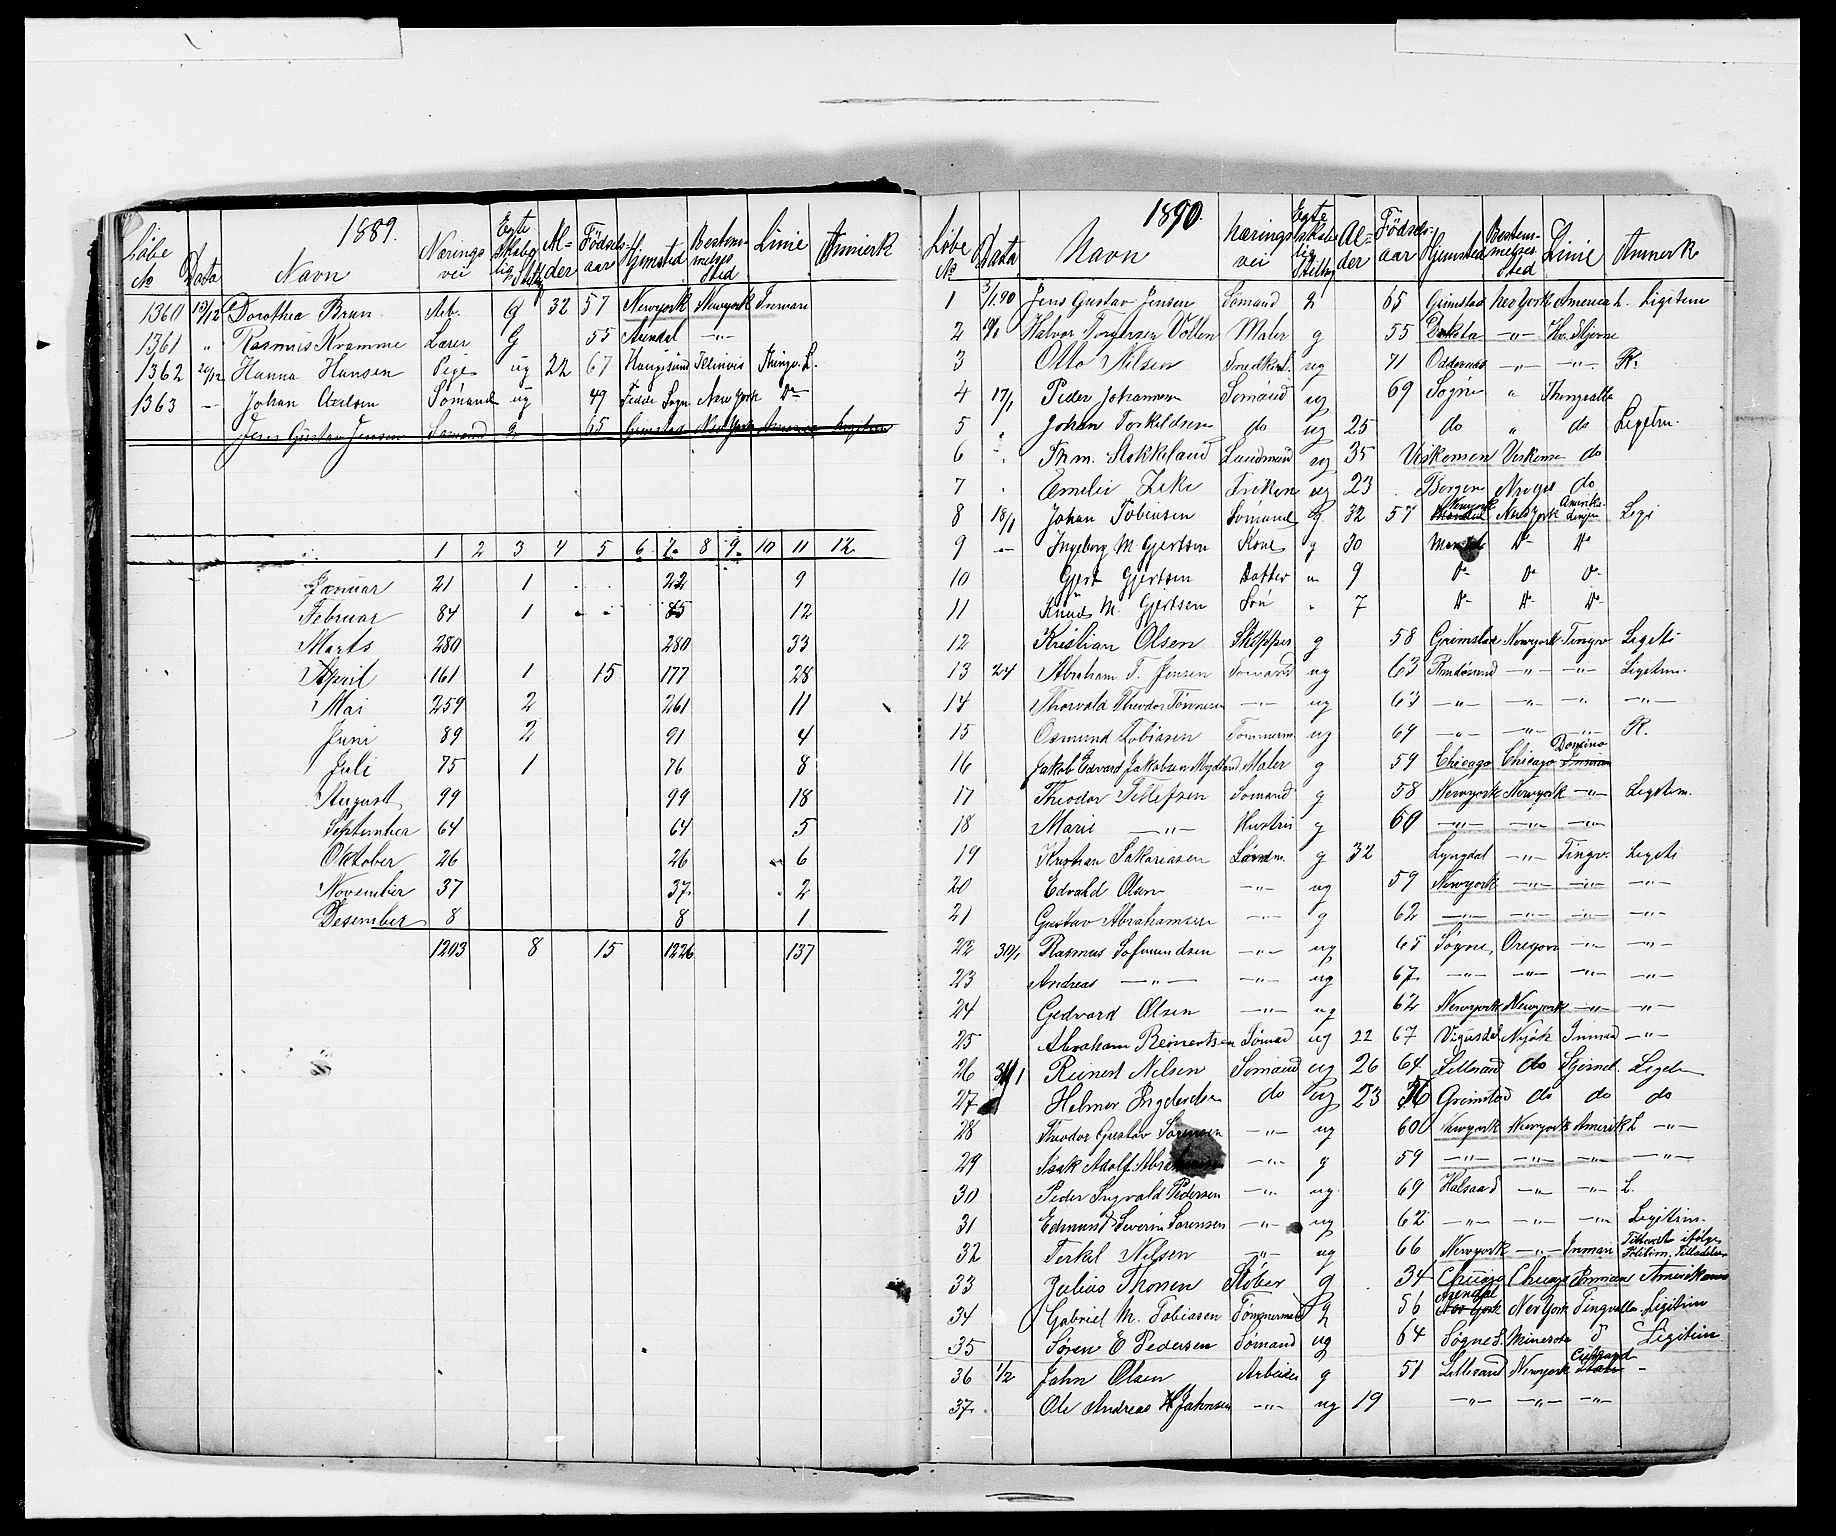 1889.
Løbe No Data Navn Nærings vei Egte skabelig Stilling Al-der Fødsels-aar Hjemsted Bestem-melses Sted Linie Anmerk
1360 13/12 Dorothea Brun Arb. G 32 57 Newyork Newyork Inman
1361 " Rasmus Kramme Lærer G 55 Arendal -"-
1362 20/12 Hanna Hansen Pige ug 22 67 Haugesund Illinois Thingv. L.
1363 -"- Johan Axelsen Sømand ug 49 Fedde Sogn New York Do
Jens Gustav Jensen Sømand g 65 Grimstad New York America Legitim
1 2 3 4 5 6 7 8 9 10 11 12
Januar 21 1 22 9
Februar 84 1 85 12
Marts 280 280 33
April 161 1 15 177 28
Mai 259 2 261 11
Juni 89 2 91 4
Juli 75 1 76 8
August 99 99 18
September 64 64 5
Oktober 26 26 6
November 37 37 2
Desember 8 8 1
1203 8 15 1226 137
1890.
Løbe No Data Navn Nærings vei Egte skabelig Stilling Al-der Fødsels-aar Hjemsted Bestem-melses Sted Linie Anmerk
1 3/1 90 Jens Gustav Jensen Sømand g 65 Grimstad New York America L. Legitim
2 Halvor Maler g 55 -"-
3 Otto Nilsen ug 71 Oddernes -"- -"- R.
4 17/1 Peder Johannesen Sømand ug 69 Søgne " Thingvalla
5 Johan Torkildsen do ug 25 do " do Legitm.
6 Thm. Stokkeland Landmand ug 35 Viskonsen Viskonsen do
7 Emilie Frøken ug 23 Bergen do
8 18/1 Johan Tobiasen Sømand g 32 57 Newyork New York Amerika Linjen Legi
9 -"- Ingeborg M. Gjertsen Kone g 30 Mandal Do Do
10 Gjert Gjertsen Datter " 9 Do Do Do
11 Knud M. Gjertsen Søn " 7 Do Do Do
12 Kristian Olsen Skipper g 58 Grimstad Newyork Tingv. Legeti
13 24 Abraham T. Jensen Sømand ug 63 Randøsund -"- -"- Legitm.
14 Thorvald Theodor Tønnesen -"- ug 63 -"- -"- -"- -"-
15 Osmund Tobiasen Tømmerm. ug 69 -"- -"- -"- R.
16 Jakob Edvard Jakobsen Mydland Maler g 59 Chicago Chicago Domino Inman
17 Theodor Tellefsen Sømand g 58 Newyork Newyork -"- Legitm.
18 Marie -"- Hustru g 60 -"- -"- -"-
19 Kristian Sakariasen Sømdm. g 32 Lyngdal -"- Tingv. Legeti
20 Edvald Olsen -"- ug 59 Newyork -"- -"- -"-
21 Gustav Abrahamsen -"- g 62 -"- -"- -"- -"-
22 30/1 Rasmus Sofmundsen -"- ug 65 Søgne Oregon -"- -"-
23 Andreas -"- -"- ug 67 -"- -"- -"- -"-
24 Gedvard Olsen -"- ug 62 Newyork Newyork -"- -"-
25 Abraham Reinertsen Sømad ug 22 67 Nyörk Inman -"-
26 31/1 Reinert Nilsen Sømand ug 26 64 Lillesand do Stjernel. Legitm
27 Helmer do ug 23 Grimstad do do do
28 Theodor Gustav Sørensen -"- ug 60 Newyork Newyork Amerik L -"-
29 Isak Adolf Abrahamsen -"- g 59 -"- -"- -"- -"-
30 Peder Ingvald Pedersen -"- ug. 69 -"- -"- L.
31 Edmund Severin Sørensen -"- ug 62 -"- -"- -"- Legitim.
32 Terkel Nilsen -"- ug 66 Newyork -"- Inman
33 Julius Thonsen g 34 Chicago Chicago Inman Amerikaner
34 Gabriel M. Tobiasen Tømmermd g 56 Arendal New York New York Tingvalla Legitim
35 Søren E Pedersen Sømand ug 64 Søgne S. Minesota Do Legitim
36 1/2 John Olsen Arbeider g 51 Lillesand Newyork -
37 Ole Andreas Johnsen -"- ug 19 -"- -"- -"-